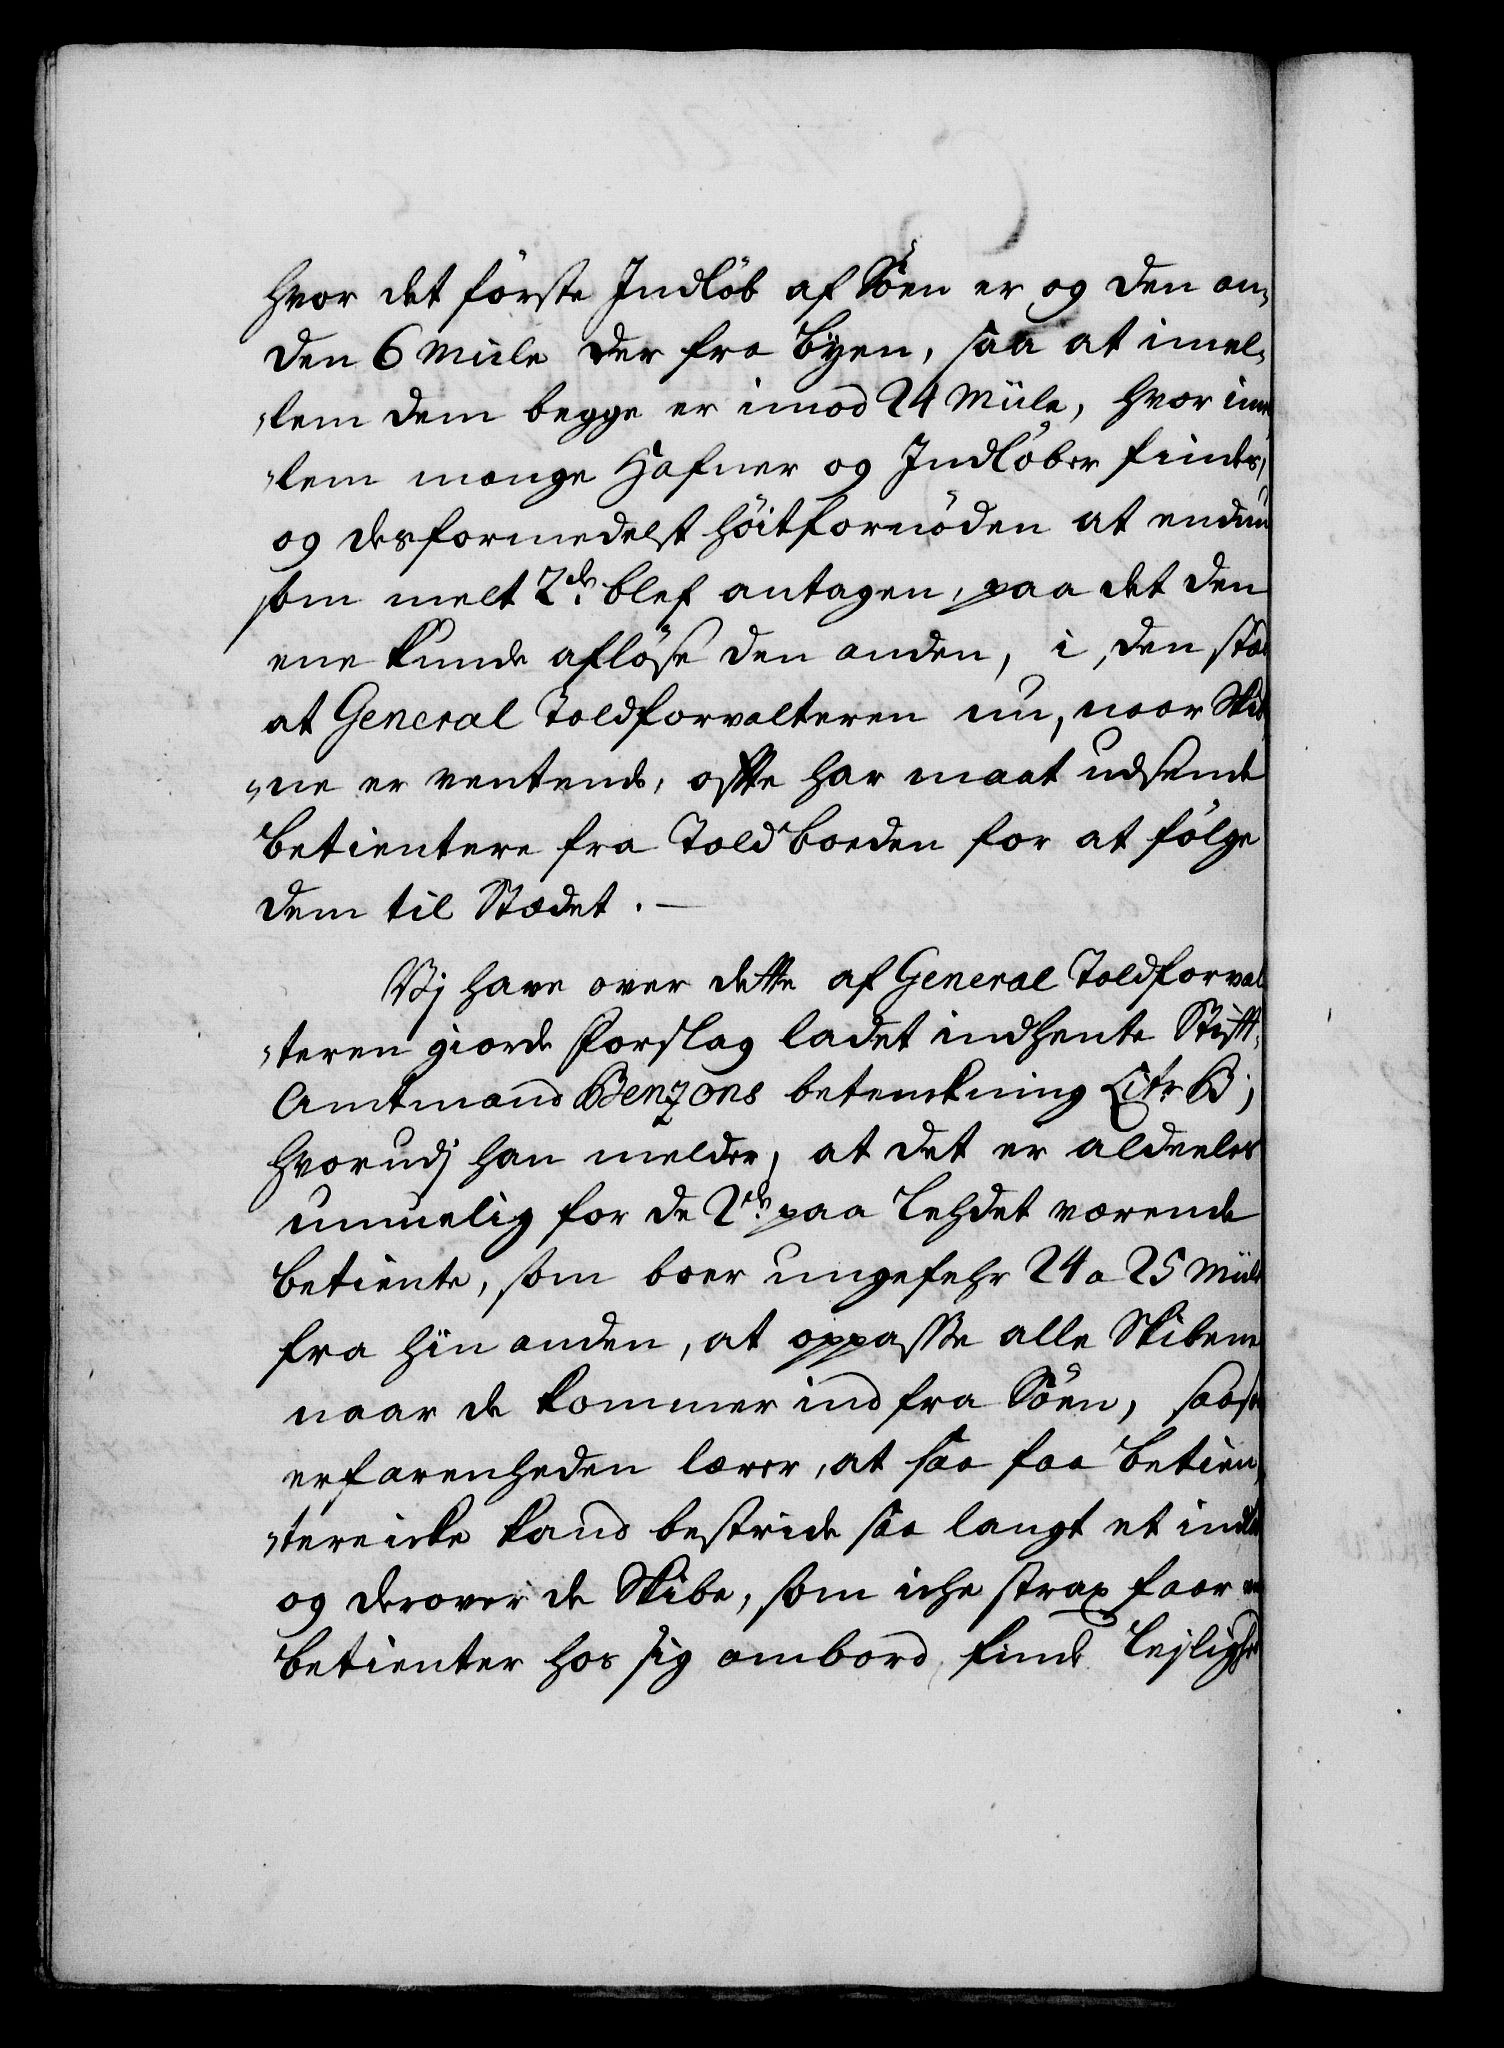 hvor det første Indløb af Søen er og den an-
den 6 Miile der fra Byen, saa at imel-
"lem dem begge er imod 24 Miile, hvor imel
"lem mange Hafner og Indløber findes,
og desformedelst høitfornøden at endnu
som melt 2de blef antagen, paa det den
ene kunde afløse den anden, i den stæd
at General Toldforvalteren nu, naar Skibe
"ne er ventende, offte har maat udsende
Betientere fra Toldboeden for at følge
dem til Stædet. —
Vj have over dette af General Toldforval
"teren giorde Forslag ladet indhente Stifft-
Amtmand Benzons betenckning Litr B;
hvorudj han melder, at det er aldeeles
umuelig for de 2de paa Lehdet værende
Betiente, som boer ungefehr 24 a 25 Miile
fra hin anden, at oppasse alle Skibene
naar de kommer ind fra Søen, saasom
erfarenheden lærer, at saa faa Betien
"tere icke kand bestride saa langt et indløb
og derover de Skibe, som iche strax faar en
Betienter hos sig ombord, finde Leylighed